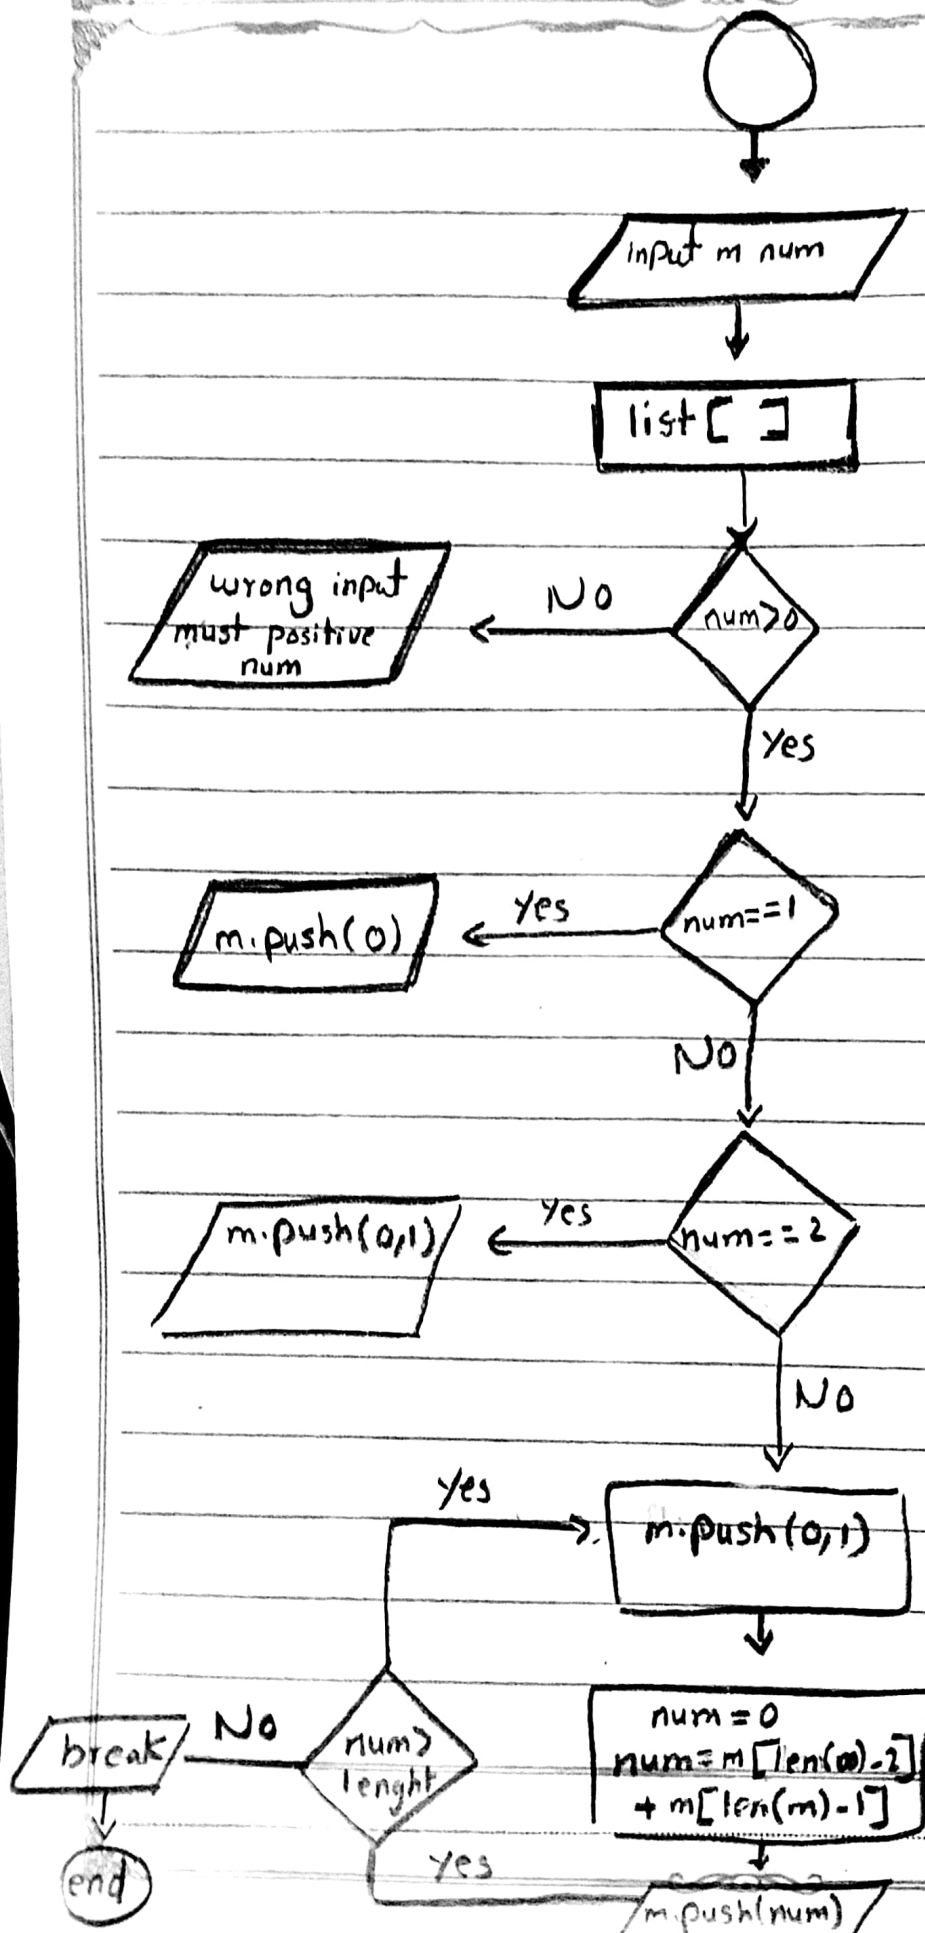 input m num
list[ ]
num>0
NO
wrong input
must positive
num
Yes
num==1
yes
m.push(0)
NO
num==2
yes
m.push(0,1)
NO
m.push(0,1)
yes
num=0
num=m[len(m)-2]
+ m[len(m)-1]
num>
lenght
No
break
end
yes
m.push(num)